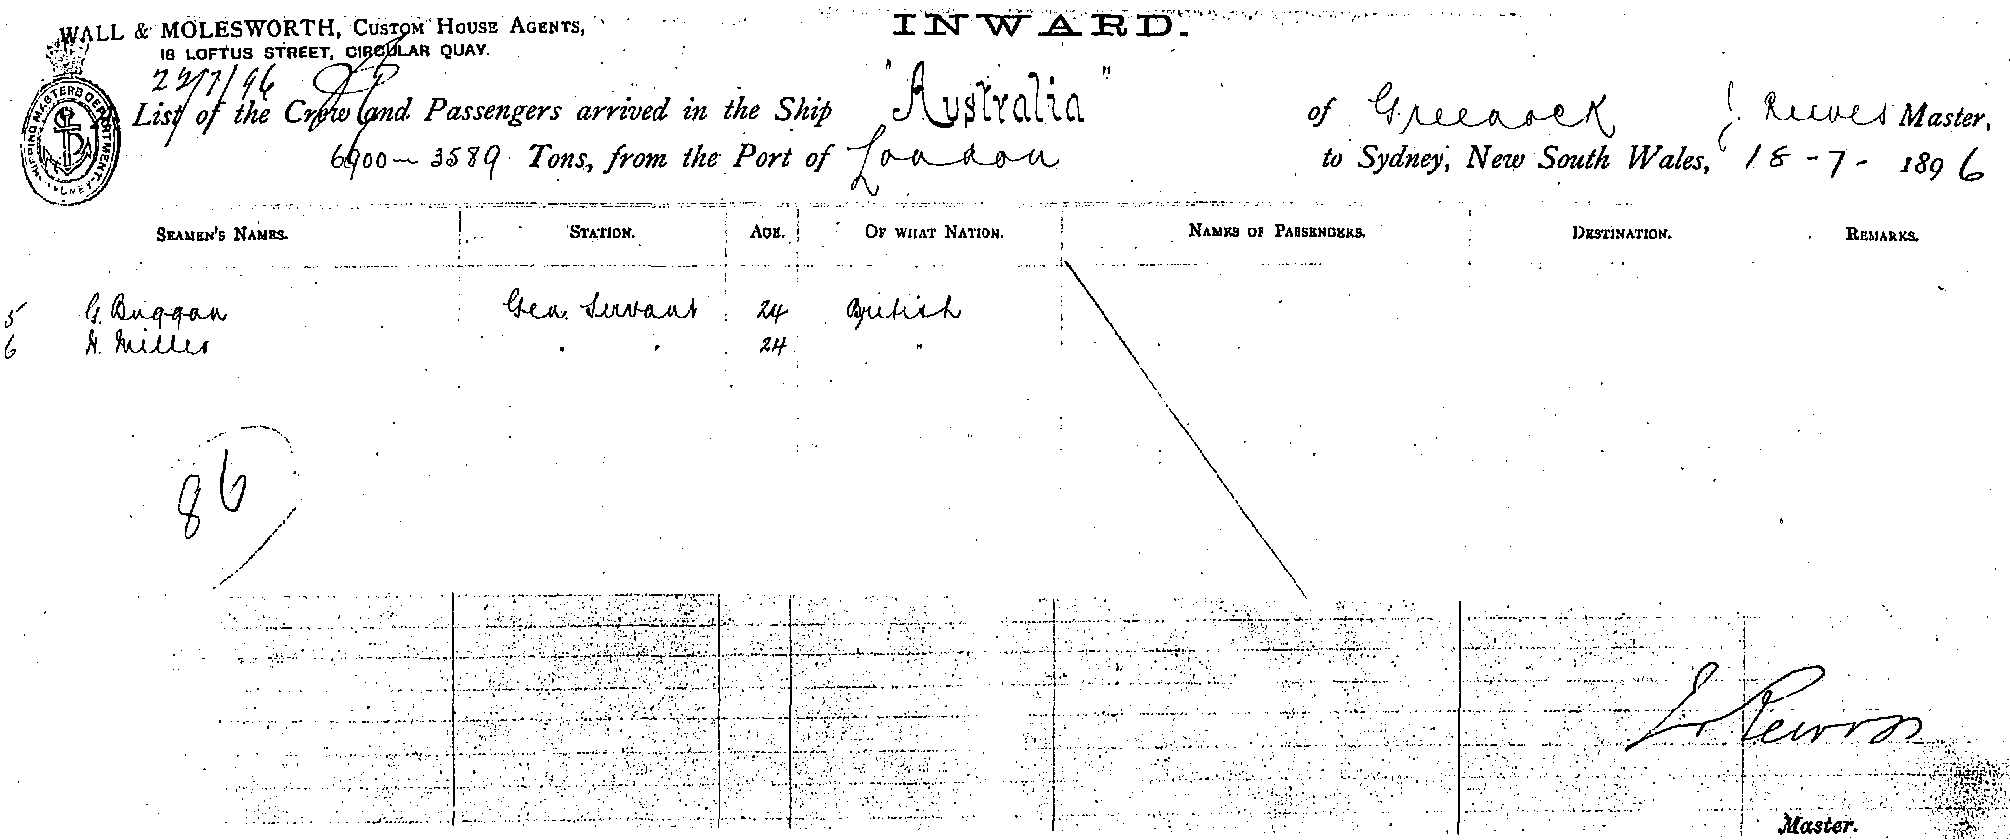 WALL & MOLESWORTH, CUSTOM HOUSE AGENTS,
18 LOFTUS STREET, CIRCULAR QUAY.
INWARD.
22/7/96
List of the Crew and Passengers arrived in the Ship "Australia" of Greenock J. Reeves Master,
6900 - 3589 Tons, from the Port of London to Sydney, New South Wales, 18-7-1896
SEAMEN'S NAMES. STATION. AGE. OF WHAT NATION. NAMES OF PASSENGERS. DESTINATION. REMARKS.
5 G. Duggan Gen. Servant 24 British
6 H. Miller " " 24 "
86
Master.